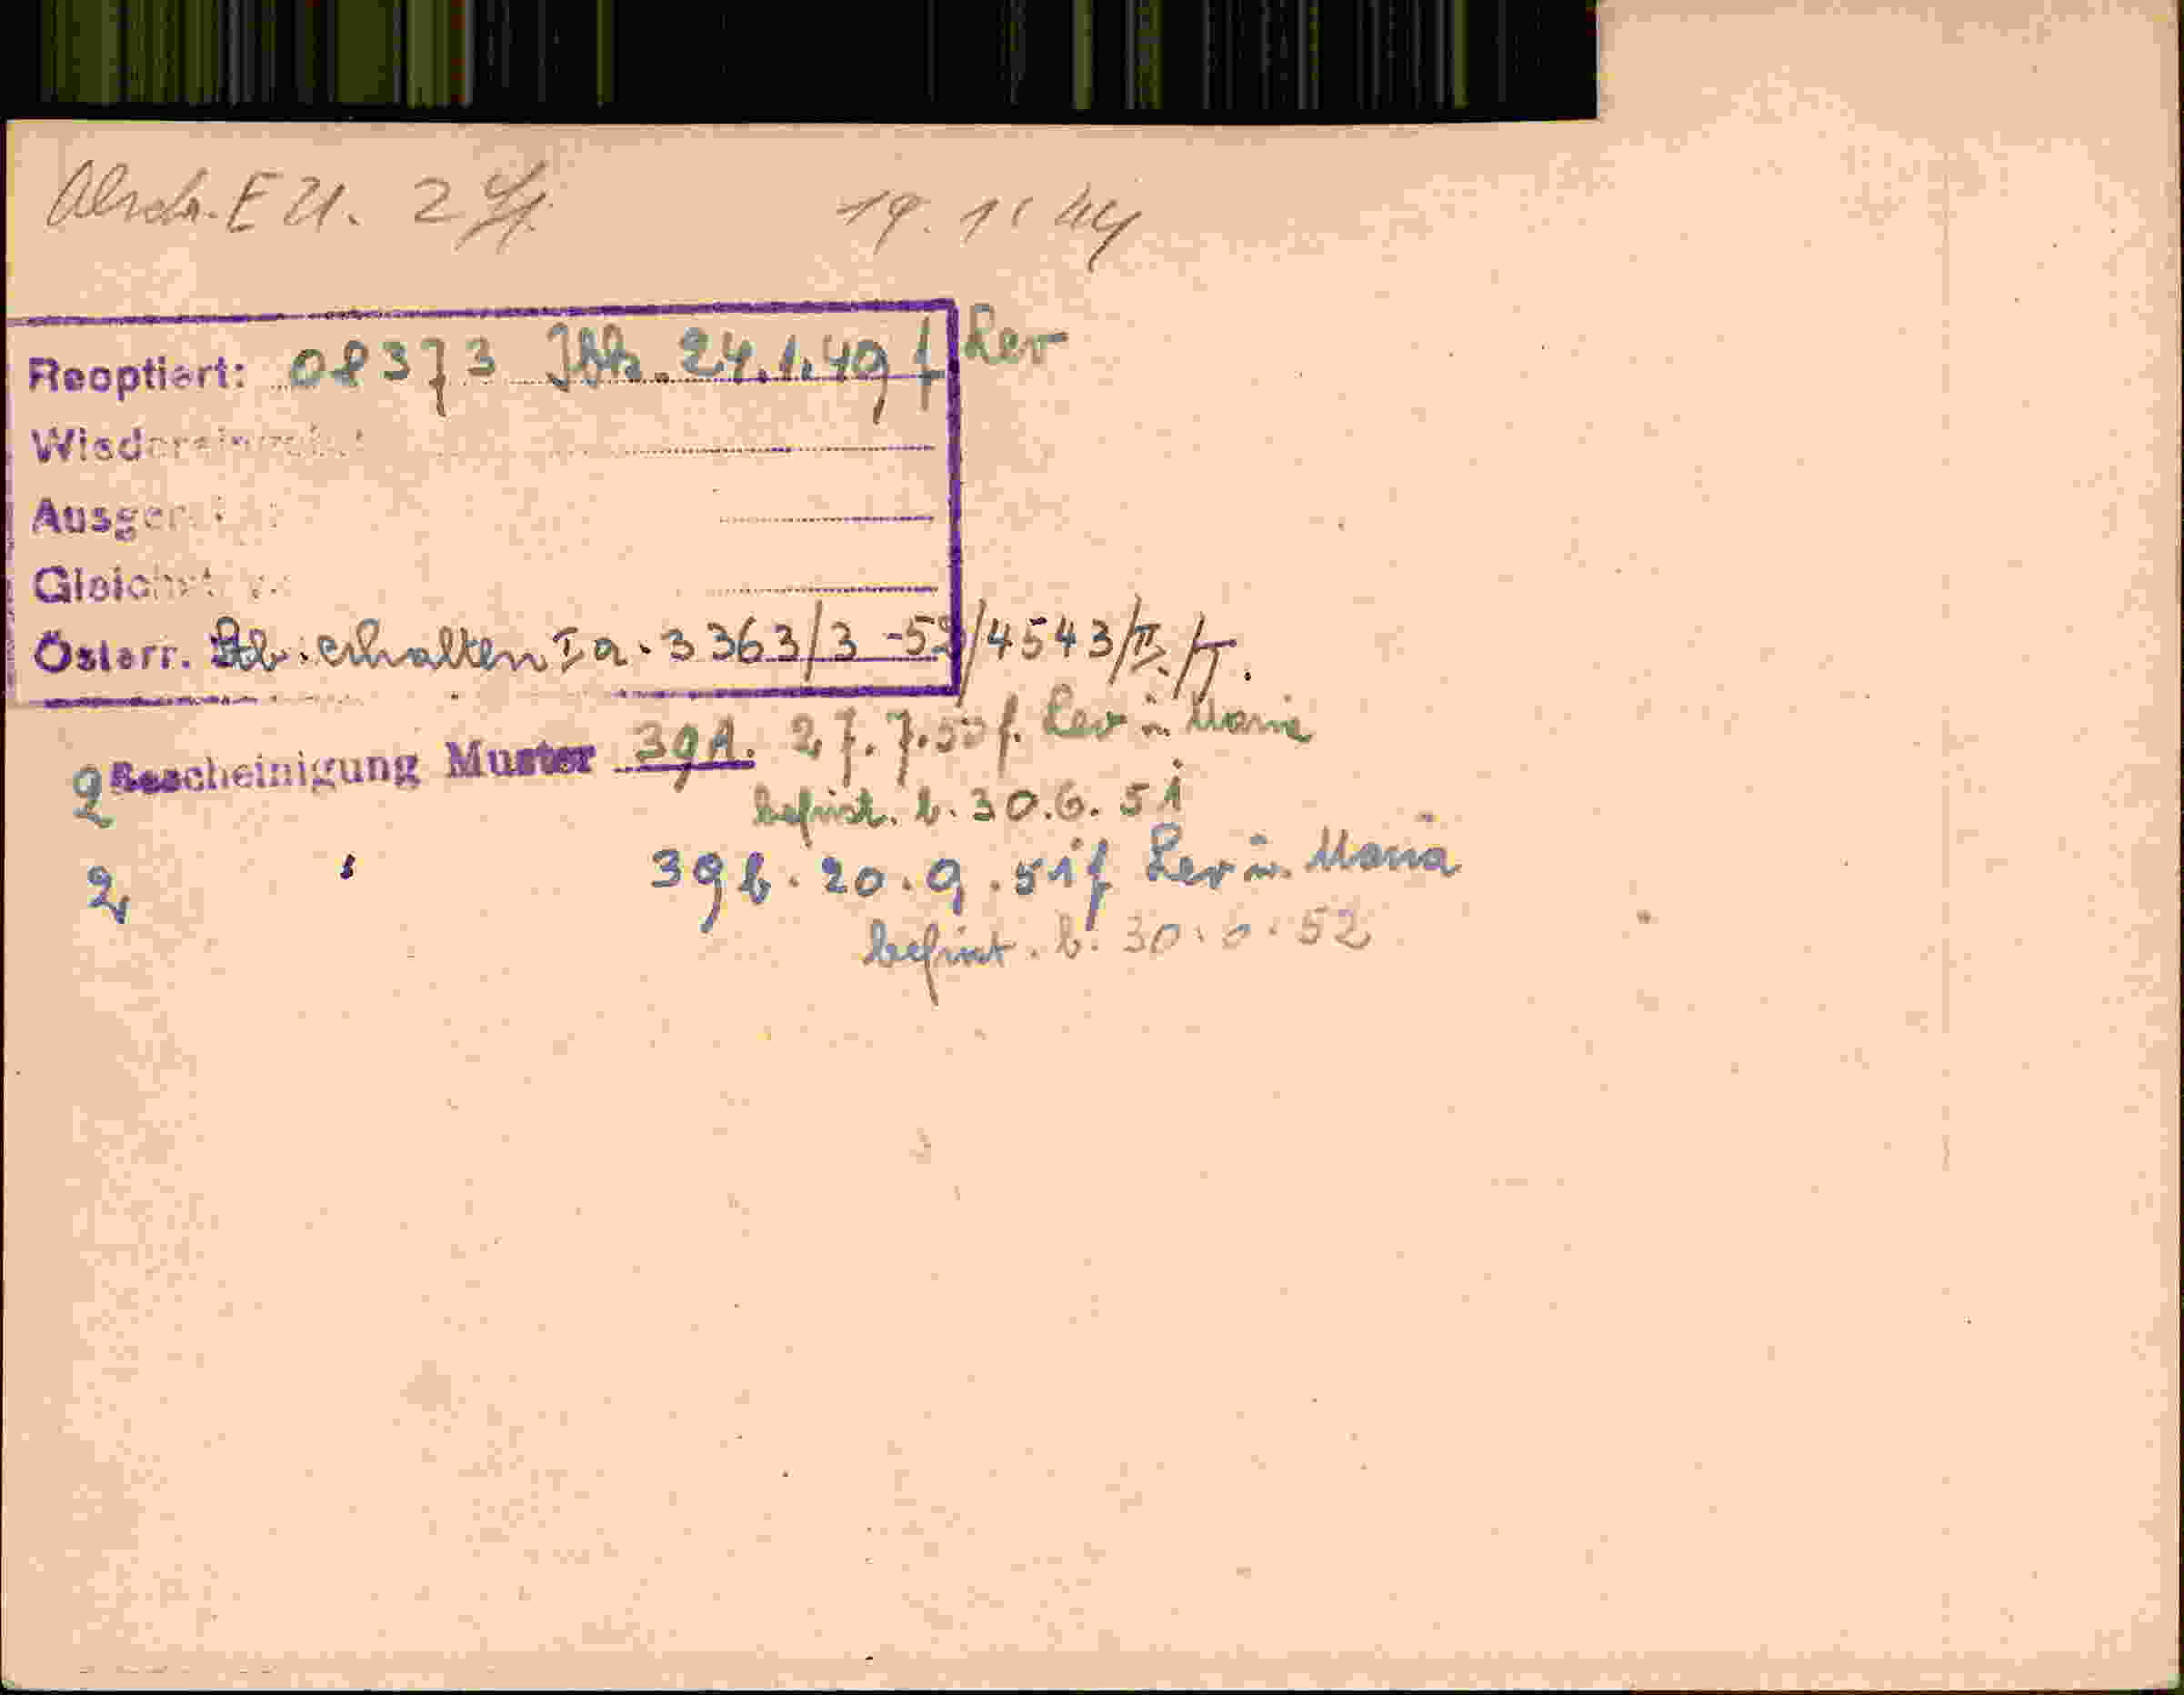 Abschr. E U. 2 19. 1. 44
Reoptiert: 08373 Ibk. 24.1.49 f Lev
Wiedereingebt
Ausger
Gleichst
Österr. Stb. erhalten I a. 3363/3 -52/4543/II/J.
2 Bescheinigung Muster 39A. 27.7.50 f. Lev u. Maria
befrist. b. 30.6.51
2 " 39b. 20.9.51 f Lev u. Maria
befrist. b. 30.6.52